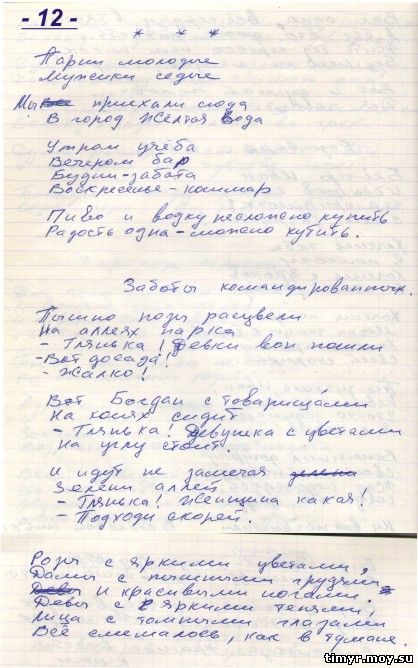 - 12 -
* * *
Парни молодые
Мужики седые
Мы приехали сюда
В город Жёлтая Вода
Утром учёба
Вечером бар
Будни-забота
Воскресенье-кошмар
Пиво и водку несложно купить
Радость одна-можно кутить.
Заботы командированных.
Пышно розы расцвели
На аллеях парка
- Глянька! Девки вон пошли
- Вот досада!
- Жалко!
Вот Богдан с товарищами
На конях сидит
- Глянька! Девушка с цветами
На углу стоит.
И идут не замечая
Зелени аллей
- Глянька! Женщина какая!
- Подходи скорей.
Розы с яркими цветами,
Дамы с пышными грудями
И красивыми ногами.
Девы с яркими тенями,
Лица с томными глазами
Всё смешалось, как в тумане.
timyr.moy.su